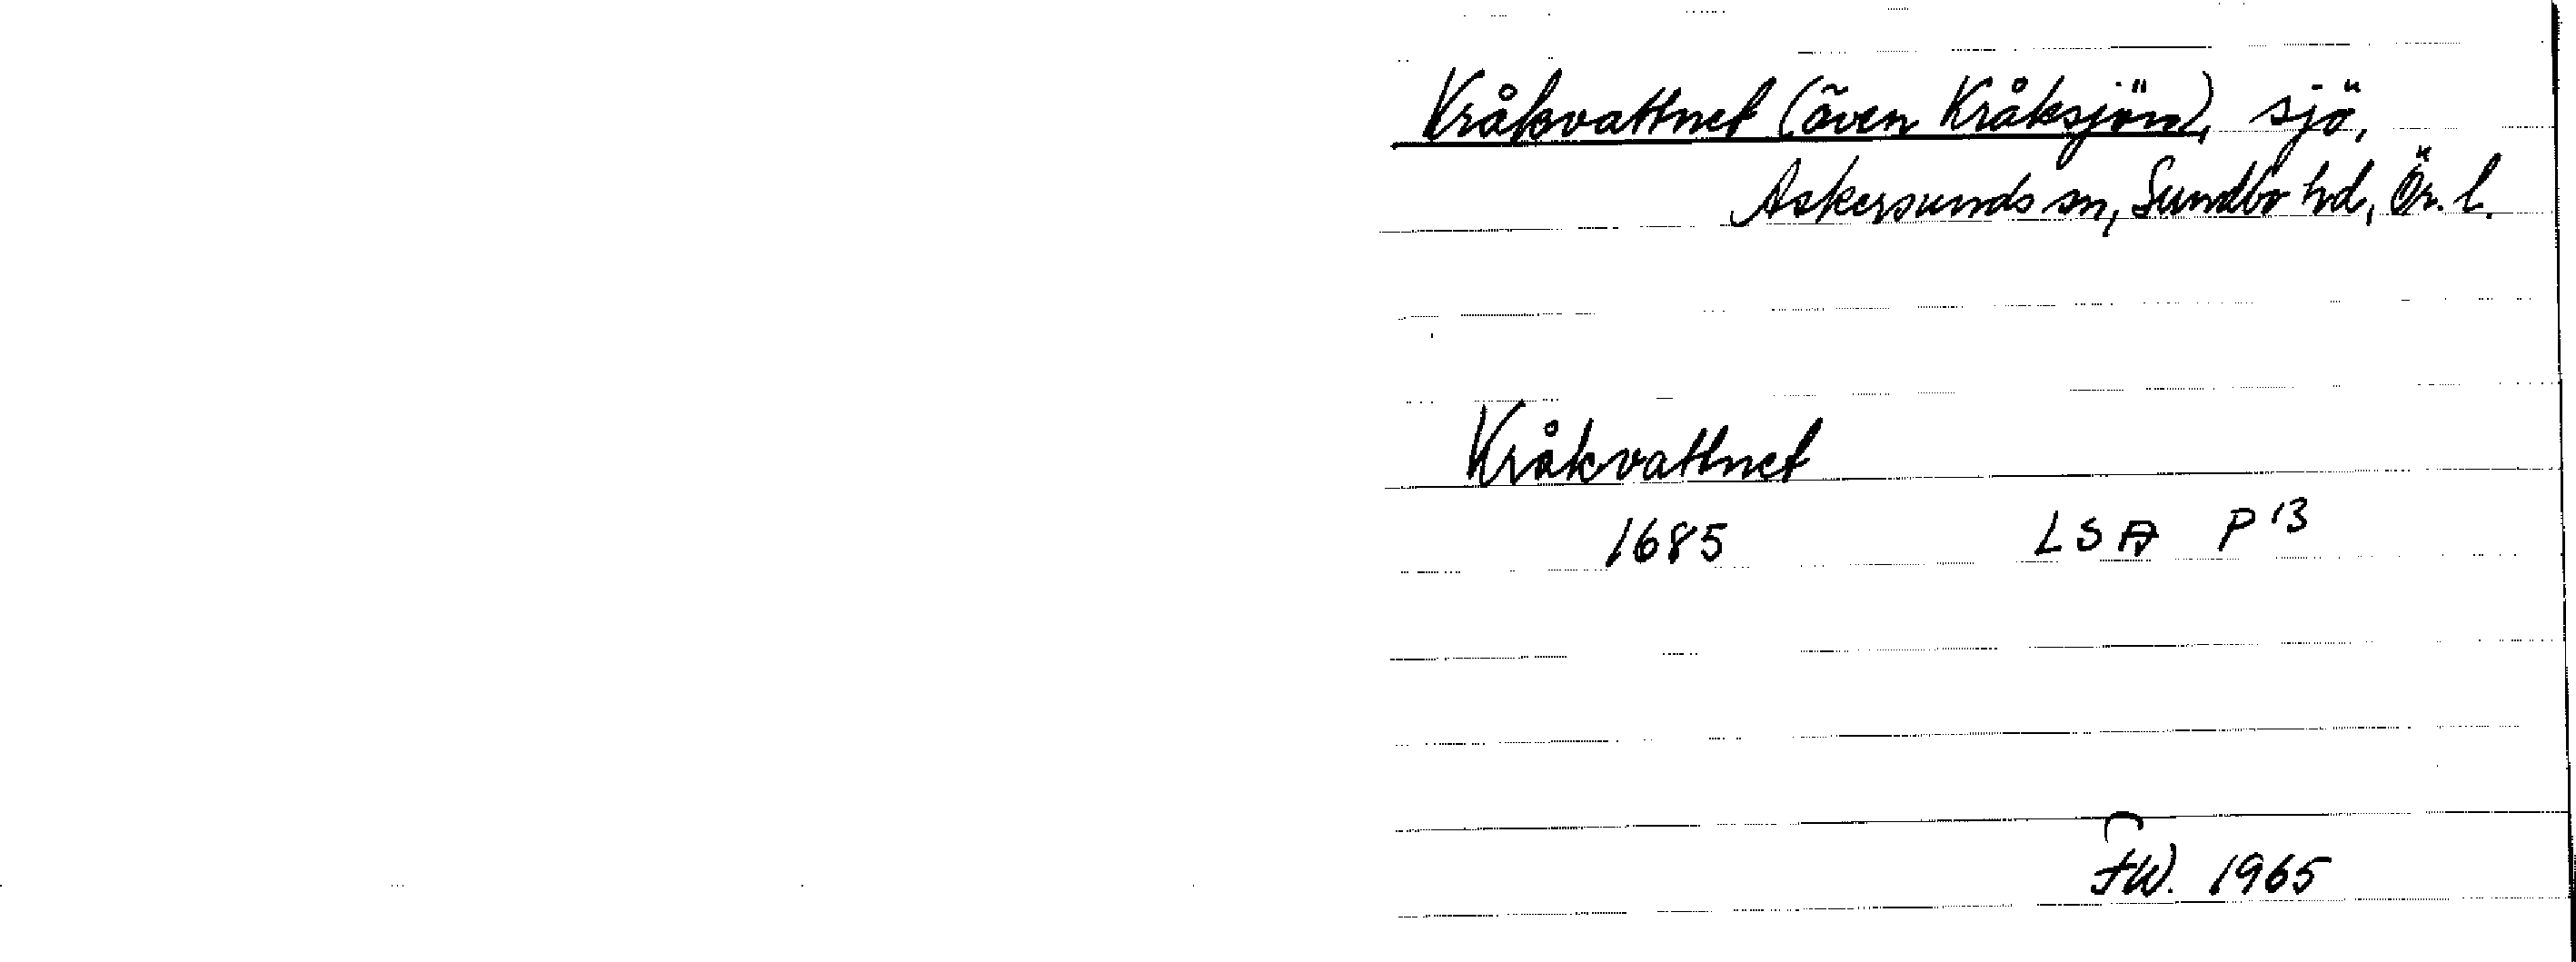 Kråkvattnet (även Kråksjön), sjö,
Askersunds sn, Sundbo hd, Ör. l.
Kråkvattnet
1685 LSA P 13
FW. 1965